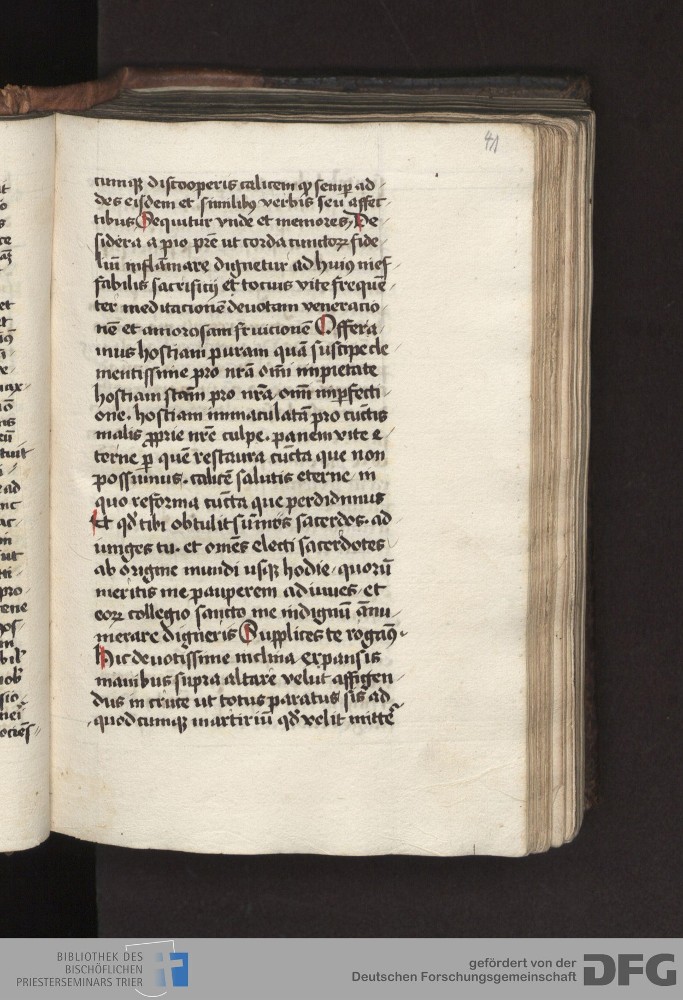 41
cumqꝫ discooperis calicem qꝫ semꝑ ad
des eisdem et similibꝰ verbis seu affec
tibus Sequitur vnde et memores, De
sidera a pio pr̄e ut corda cunctoꝝ fide
liū inflāmare dignetur ad huiꝰ inef
fabilis sacrificij et tocius vite frequē
ter meditacionē deuotam veneracio
nē et amorosam fruicionē Offera
mus hostiam puram quā suscipe cle
mentissime pro nr̄a om̄i impietate
hostiam sc̄am pro nr̄a om̄i imꝑfecti
one. hostiam immaculatā pro cūctis
malis ꝓprie nr̄e culpe. panem vite e
terne ꝑ quē restaura cūcta que non
possumus. calicē salutis eterne in
quo reforma cūcta que perdidimus
Et qd̄ tibi obtulit sūmꝰ sacerdos. ad
iunges tu. et om̄es electi sacerdotes
ab origine mundi usqꝫ hodie. quorū
meritis me pauperem adiuues. et
eoꝝ collegio sancto me indignū ānu
merare digneris Supplices te rogamꝰ.
Hic deuotissime inclina expansis
manibus supra altare velut affigen
dus in cruce ut totus paratus sis ad
quodcumqꝫ martiriū qd̄ velit mitte͛
BIBLIOTHEK DES
BISCHÖFLICHEN
PRIESTERSEMINARS TRIER
gefördert von der
Deutschen Forschungsgemeinschaft
DFG